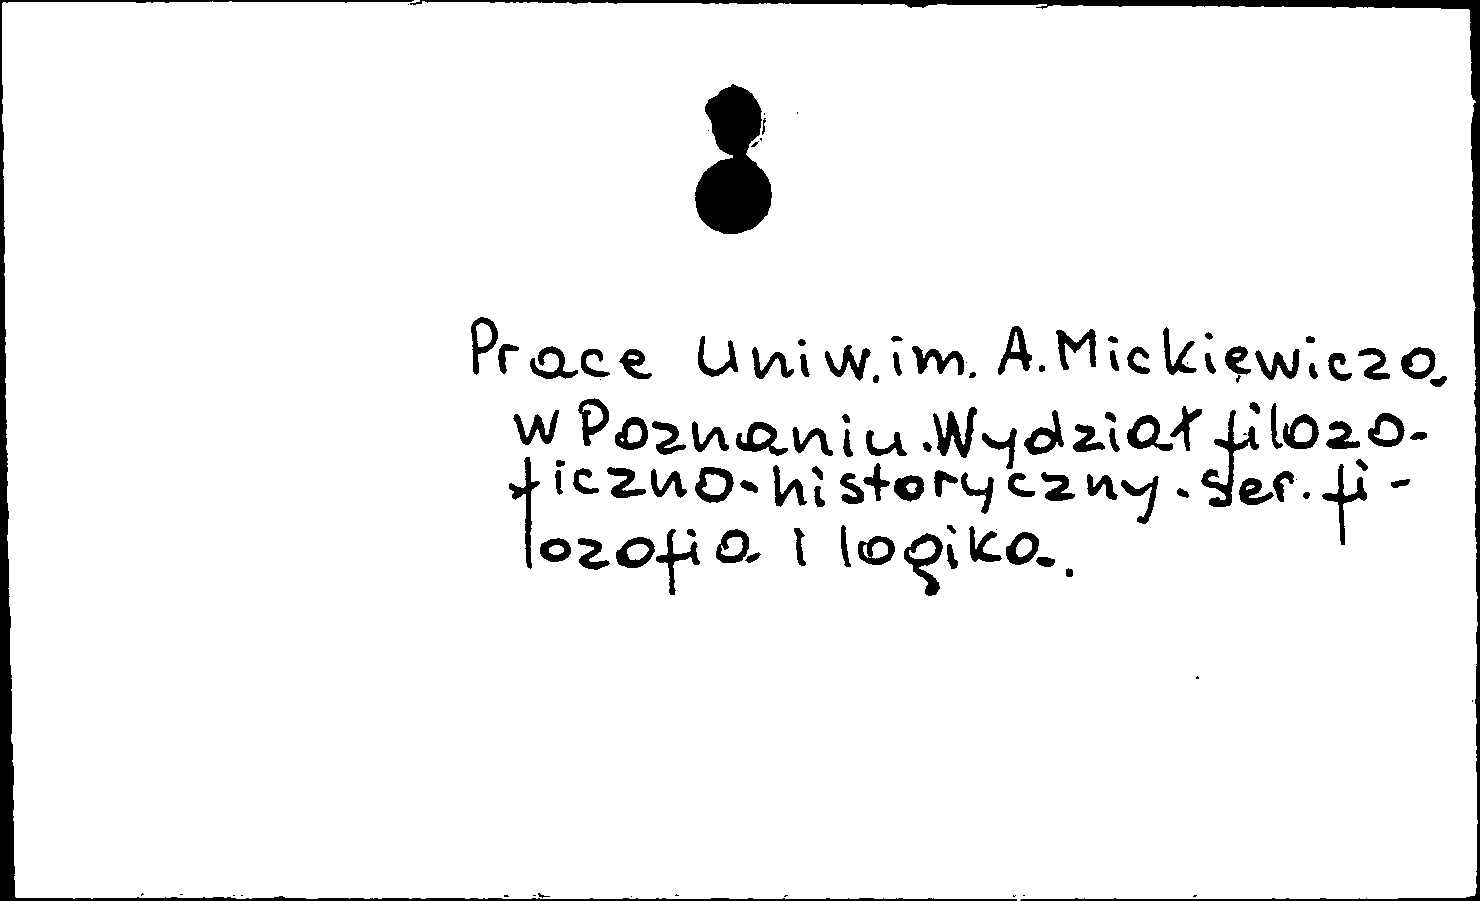 Prace Uniw. im. A. Mickiewicza
w Poznaniu. Wydział filozo-
ficzno-historyczny. Ser. fi-
lozofia i logika.